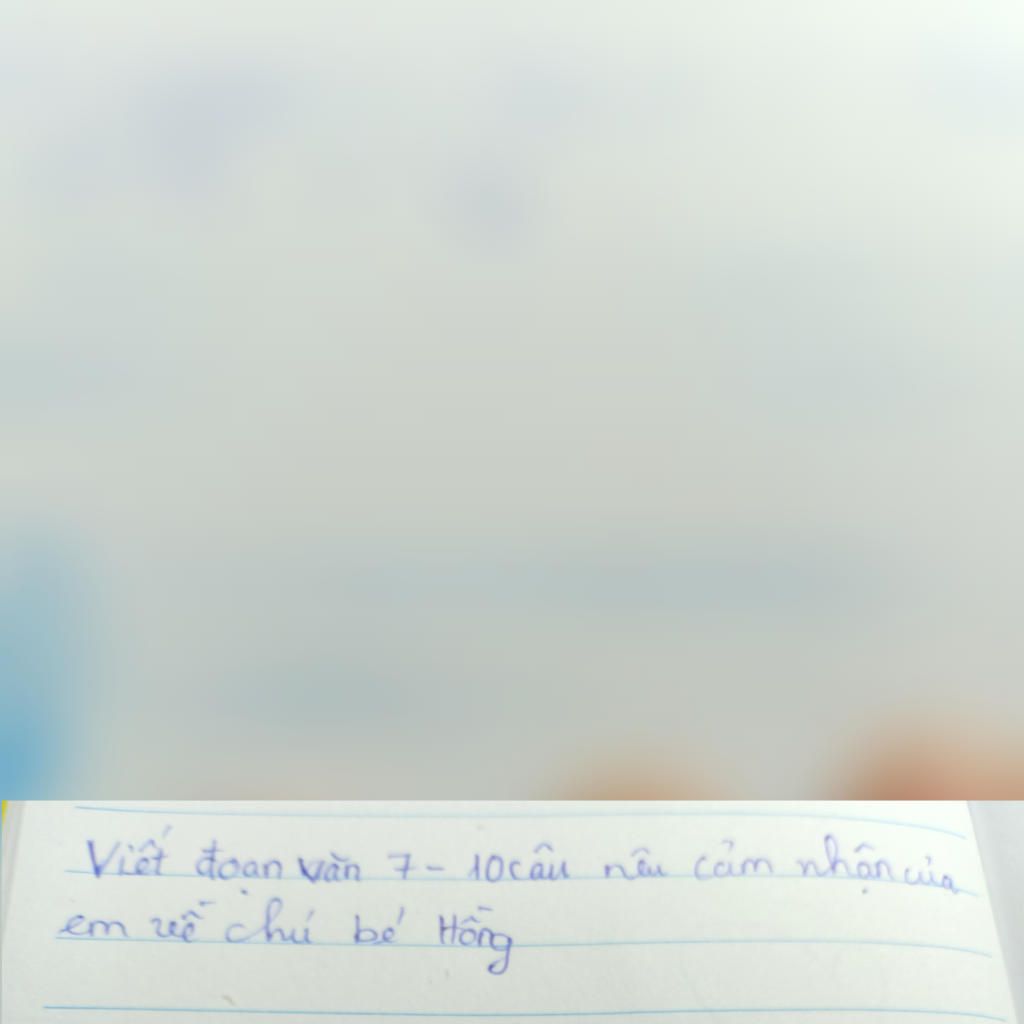 Viết đoạn văn 7 - 10 câu nêu cảm nhận của
em về chú bé Hồng